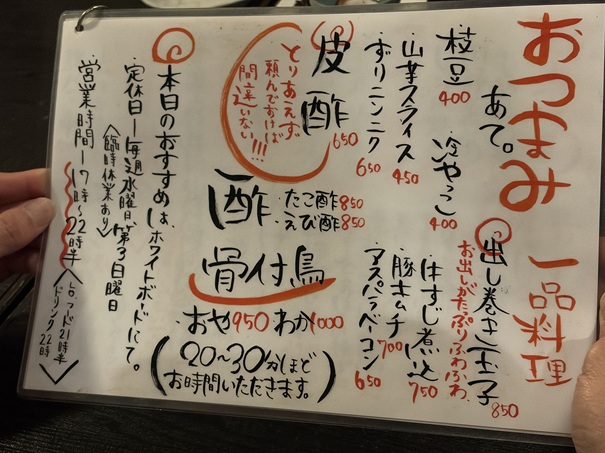 おつまみ
一品料理
あて。
枝豆 400
冷やっこ 400
山芋スライス 450
ずりニンニク 650
皮酢 650
とりあえず
頼んでおけば
間違いない!!!
出し巻き玉子 850
お出しがたっぷりふわふわ
牛すじ煮込 750
豚キムチ 700
アスパラベーコン 650
酢
たこ酢 850
えび酢 850
骨付鳥
おや950 わか1000
(20〜30分ほど
お時間いただきます。)
本日のおすすめは、ホワイトボードにて。
定休日ー毎週水曜日 第3日曜日
<臨時休業あり>
営業時間ー17時〜22時半
<フード21時半
ドリンク22時>